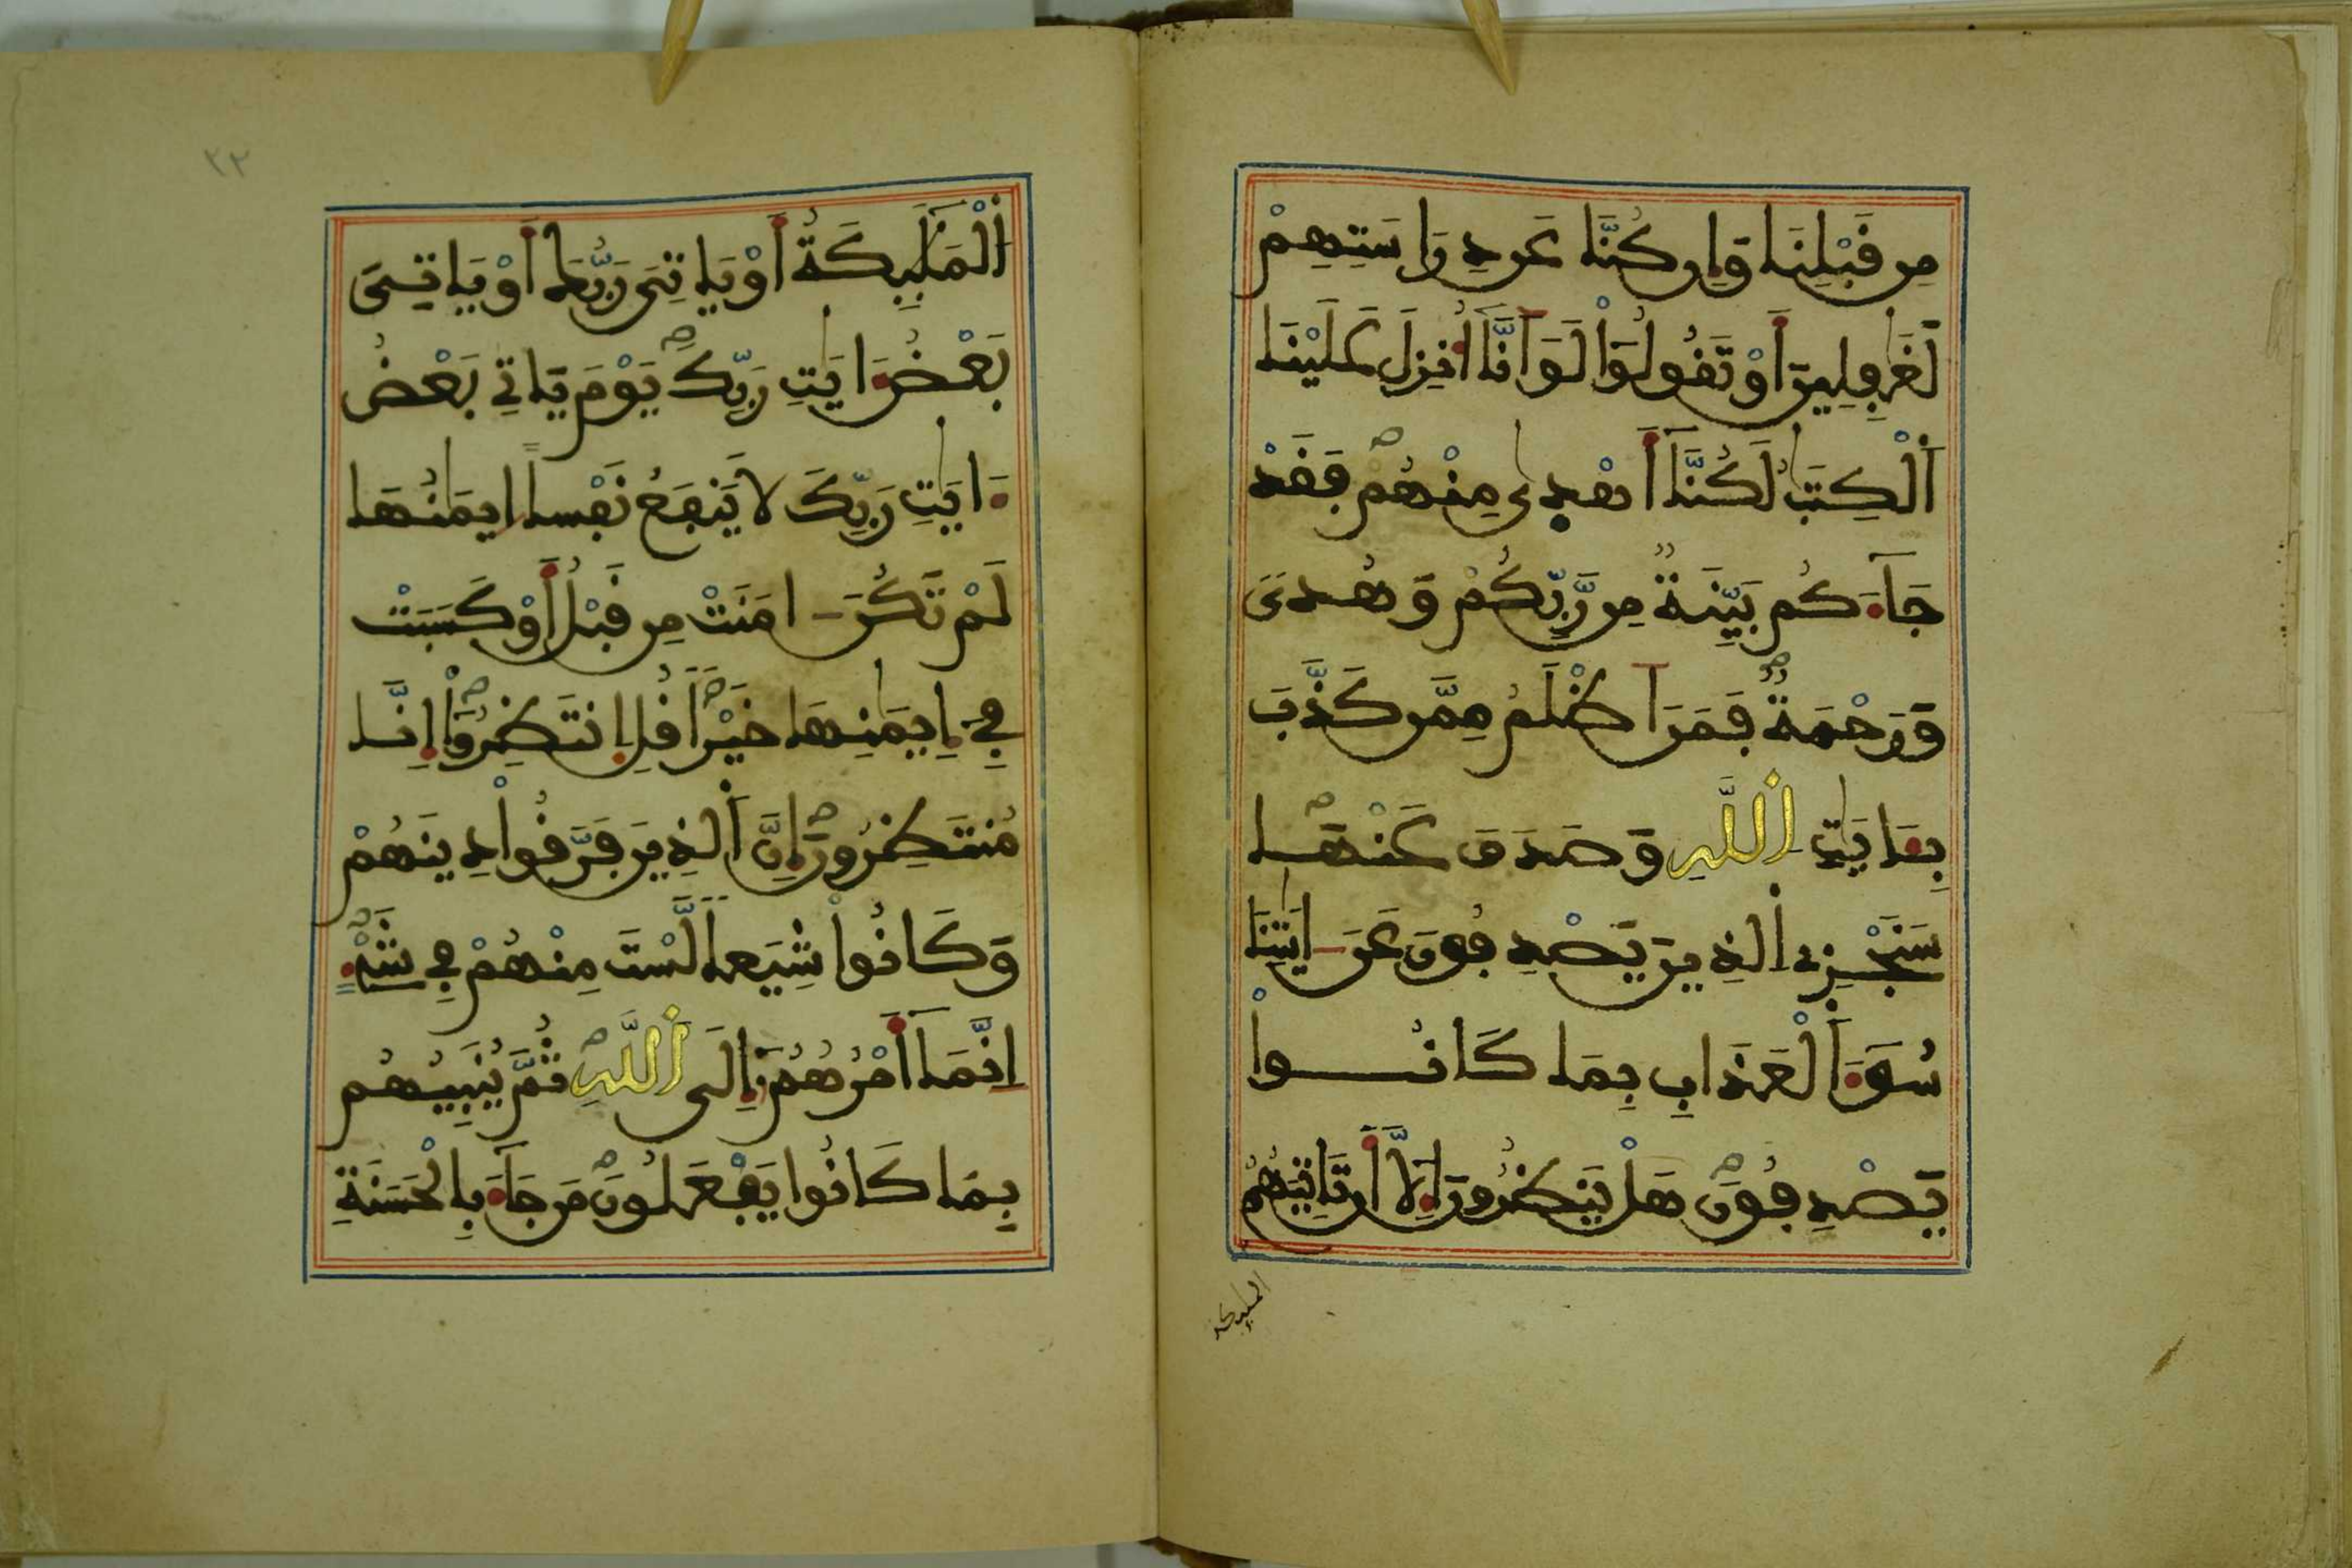 مِن قَبْلِنَا وَإِن كُنَّا عَن دِرَاسَتِهِمْ
لَغَٰفِلِينَ أَوْ تَقُولُواْ لَوَ اَنَّآ أُنزِلَ عَلَيْنَا
اَ۬لْكِتَٰبُ لَكُنَّآ أَهْدٜىٰ مِنْهُمْ فَقَدْ
جَآءَكُم بَيِّنَةٞ مِّن رَّبِّكُمْ وَهُدىٗ
وَرَحْمَةٞ فَمَنَ اَظْلَمُ مِمَّن كَذَّبَ
بِـَٔايَٰتِ اِ۬للَّهِ وَصَدَفَ عَنْهَا
سَنَجْزِے اِ۬لذِينَ يَصْدِفُونَ عَنَ اٰيَٰتِنَا
سُوٓءَ اَ۬لْعَذَابِ بِمَا كَانُواْ
يَصْدِفُونَ هَلْ يَنظُرُونَ إِلَّآ أَن تَاتِيَهُمُ
الملىكة
اُ۬لْمَلَٰٓئِكَةُ أَوْ يَاتِيَ رَبُّكَ أَوْ يَاتِيَ
بَعْضُ ءَايَٰتِ رَبِّكَ يَوْمَ يَاتِے بَعْضُ
ءَايَٰتِ رَبِّكَ لَا يَنفَعُ نَفْساً اِيمَٰنُهَا
لَمْ تَكُنَ اٰمَنَتْ مِن قَبْلُ أَوْ كَسَبَتْ
فِے إِيمَٰنِهَا خَيْراٗ قُلِ اِ۪نتَظِرُوٓاْ إِنَّا
مُنتَظِرُونَ إِنَّ اَ۬لذِينَ فَرَّقُواْ دِينَهُمْ
وَكَانُواْ شِيَعاٗ لَّسْتَ مِنْهُمْ فِے شَےْءٍ
اِنَّمَآ أَمْرُهُمُۥٓ إِلَى اَ۬للَّهِ ثُمَّ يُنَبِّئُهُم
بِمَا كَانُواْ يَفْعَلُونَ مَن جَآءَ بِالْحَسَنَةِ
٣٢